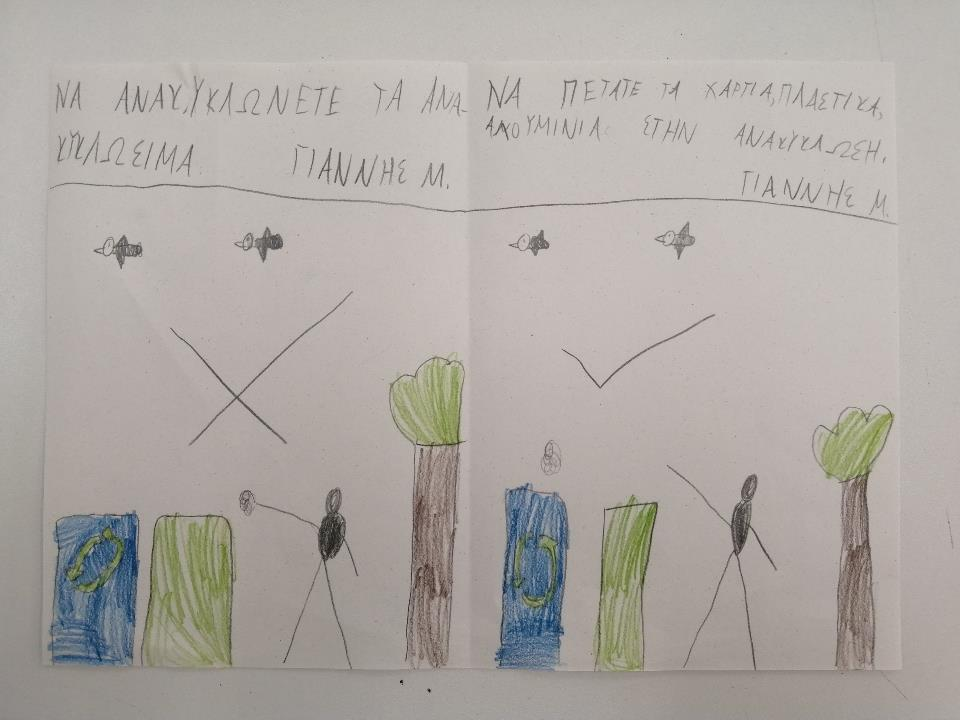 ΝΑ ΑΝΑΚΥΚΛΩΝΕΤΕ ΤΑ ΑΝΑ-
ΚΥΚΛΩΣΙΜΑ.
ΓΙΑΝΝΗΣ Μ.
ΝΑ ΠΕΤΑΤΕ ΤΑ ΧΑΡΤΙΑ, ΠΛΑΣΤΙΚΑ,
ΑΛΟΥΜΙΝΙΑ ΣΤΗΝ ΑΝΑΚΥΚΛΩΣΗ.
ΓΙΑΝΝΗΣ Μ.